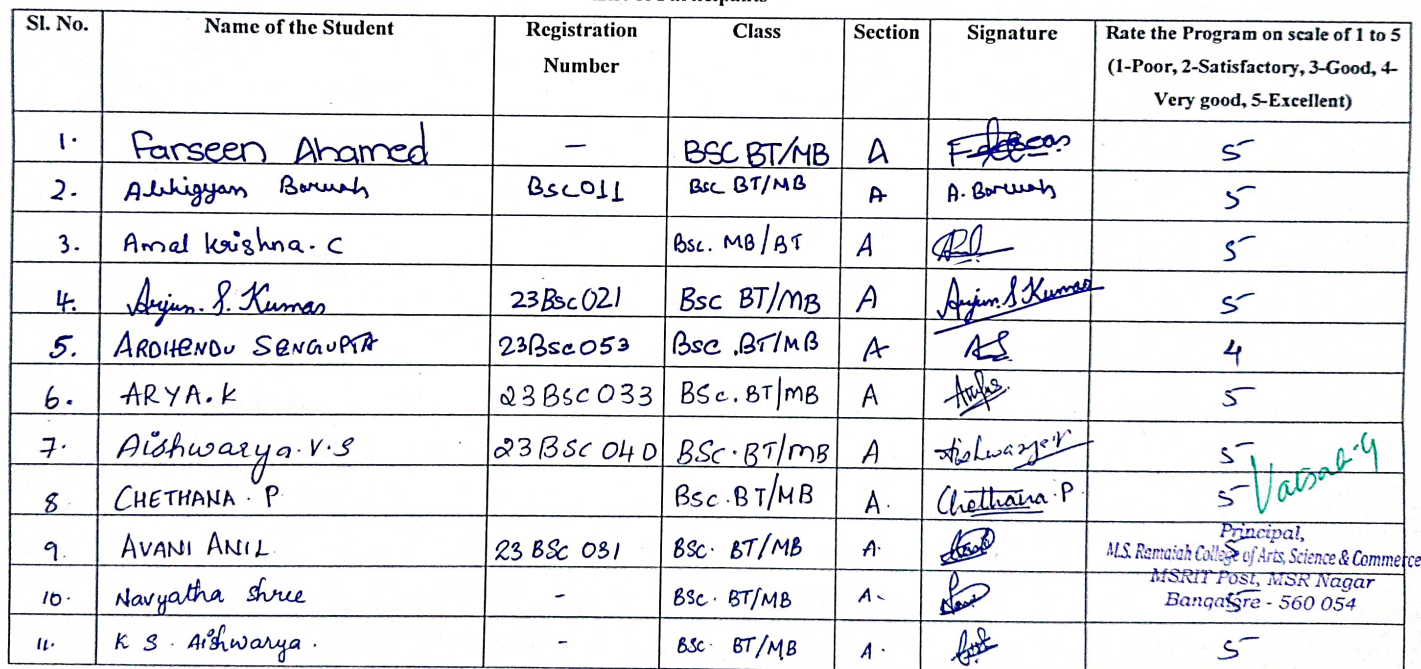 Sl. No. Name of the Student Registration Number Class Section Signature Rate the Program on scale of 1 to 5 (1-Poor, 2-Satisfactory, 3-Good, 4-Very good, 5-Excellent)
1. Farseen Ahamed - BSC BT/MB A 5
2. Abhigyan Boruah Bsc011 Bsc BT/MB A A. Boruah 5
3. Amal Krishna. C Bsc. MB/BT A 5
4. Arjun. S. Kumar 23Bsc021 Bsc BT/MB A Arjun S Kumar 5
5. ARDHENDU SENGUPTA 23Bsc053 Bsc .BT/MB A AS 4
6. ARYA.K 23BSC033 BSc.BT/MB A 5
7. Aishwarya.V.S 23BSC040 BSc.BT/MB A 5
8 CHETHANA.P Bsc.BT/MB A. Chethana.P 5
9. AVANI ANIL 23 BSc 031 BSc. BT/MB A. 5
10. Navyatha Shree - BSc. BT/MB A. 5
11. K S. Aishwarya. - BSc. BT/MB A. 5
Principal,
M.S. Ramaiah College of Arts, Science & Commerce
MSRIT Post, MSR Nagar
Bangalore - 560 054